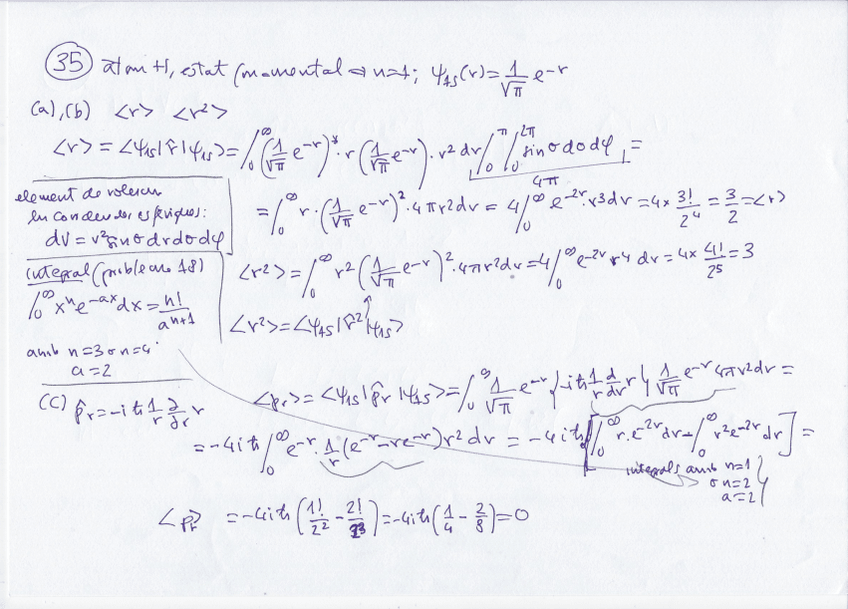 35 àtom H, estat fonamental ⇒ n=1; ψ₁ₛ(r) = 1/√π e^-r
(a), (b) <r> <r²>
<r> = <ψ₁ₛ|r̂|ψ₁ₛ> = ∫₀^∞ (1/√π e^-r)* · r (1/√π e^-r) · r² dr ∫₀^π ∫₀^2π sinθ dθ dφ =
4π
element de volum
en coordenades esfèriques:
dV = r² sinθ dr dθ dφ
= ∫₀^∞ r · (1/√π e^-r)² · 4πr² dr = 4 ∫₀^∞ e^-2r · r³ dr = 4 × 3!/2⁴ = 3/2 = <r>
integral (problema 18)
∫₀^∞ xⁿ e^-ax dx = n!/a^n+1
amb n=3 o n=4
a=2
<r²> = ∫₀^∞ r² (1/√π e^-r)² · 4πr² dr = 4 ∫₀^∞ e^-2r r⁴ dr = 4 × 4!/2⁵ = 3
<r²> = <ψ₁ₛ|r̂²|ψ₁ₛ>
(c) p̂r = -iħ 1/r ∂/∂r r
<pr> = <ψ₁ₛ|p̂r|ψ₁ₛ> = ∫₀^∞ 1/√π e^-r (-iħ 1/r d/dr r) 1/√π e^-r 4πr² dr =
= -4iħ ∫₀^∞ e^-r · 1/r (e^-r - re^-r) r² dr = -4iħ [∫₀^∞ r · e^-2r dr - ∫₀^∞ r² e^-2r dr] =
integrals amb n=1
o n=2
a=2
<p̂r> = -4iħ (1!/2² - 2!/2³) = -4iħ (1/4 - 2/8) = 0